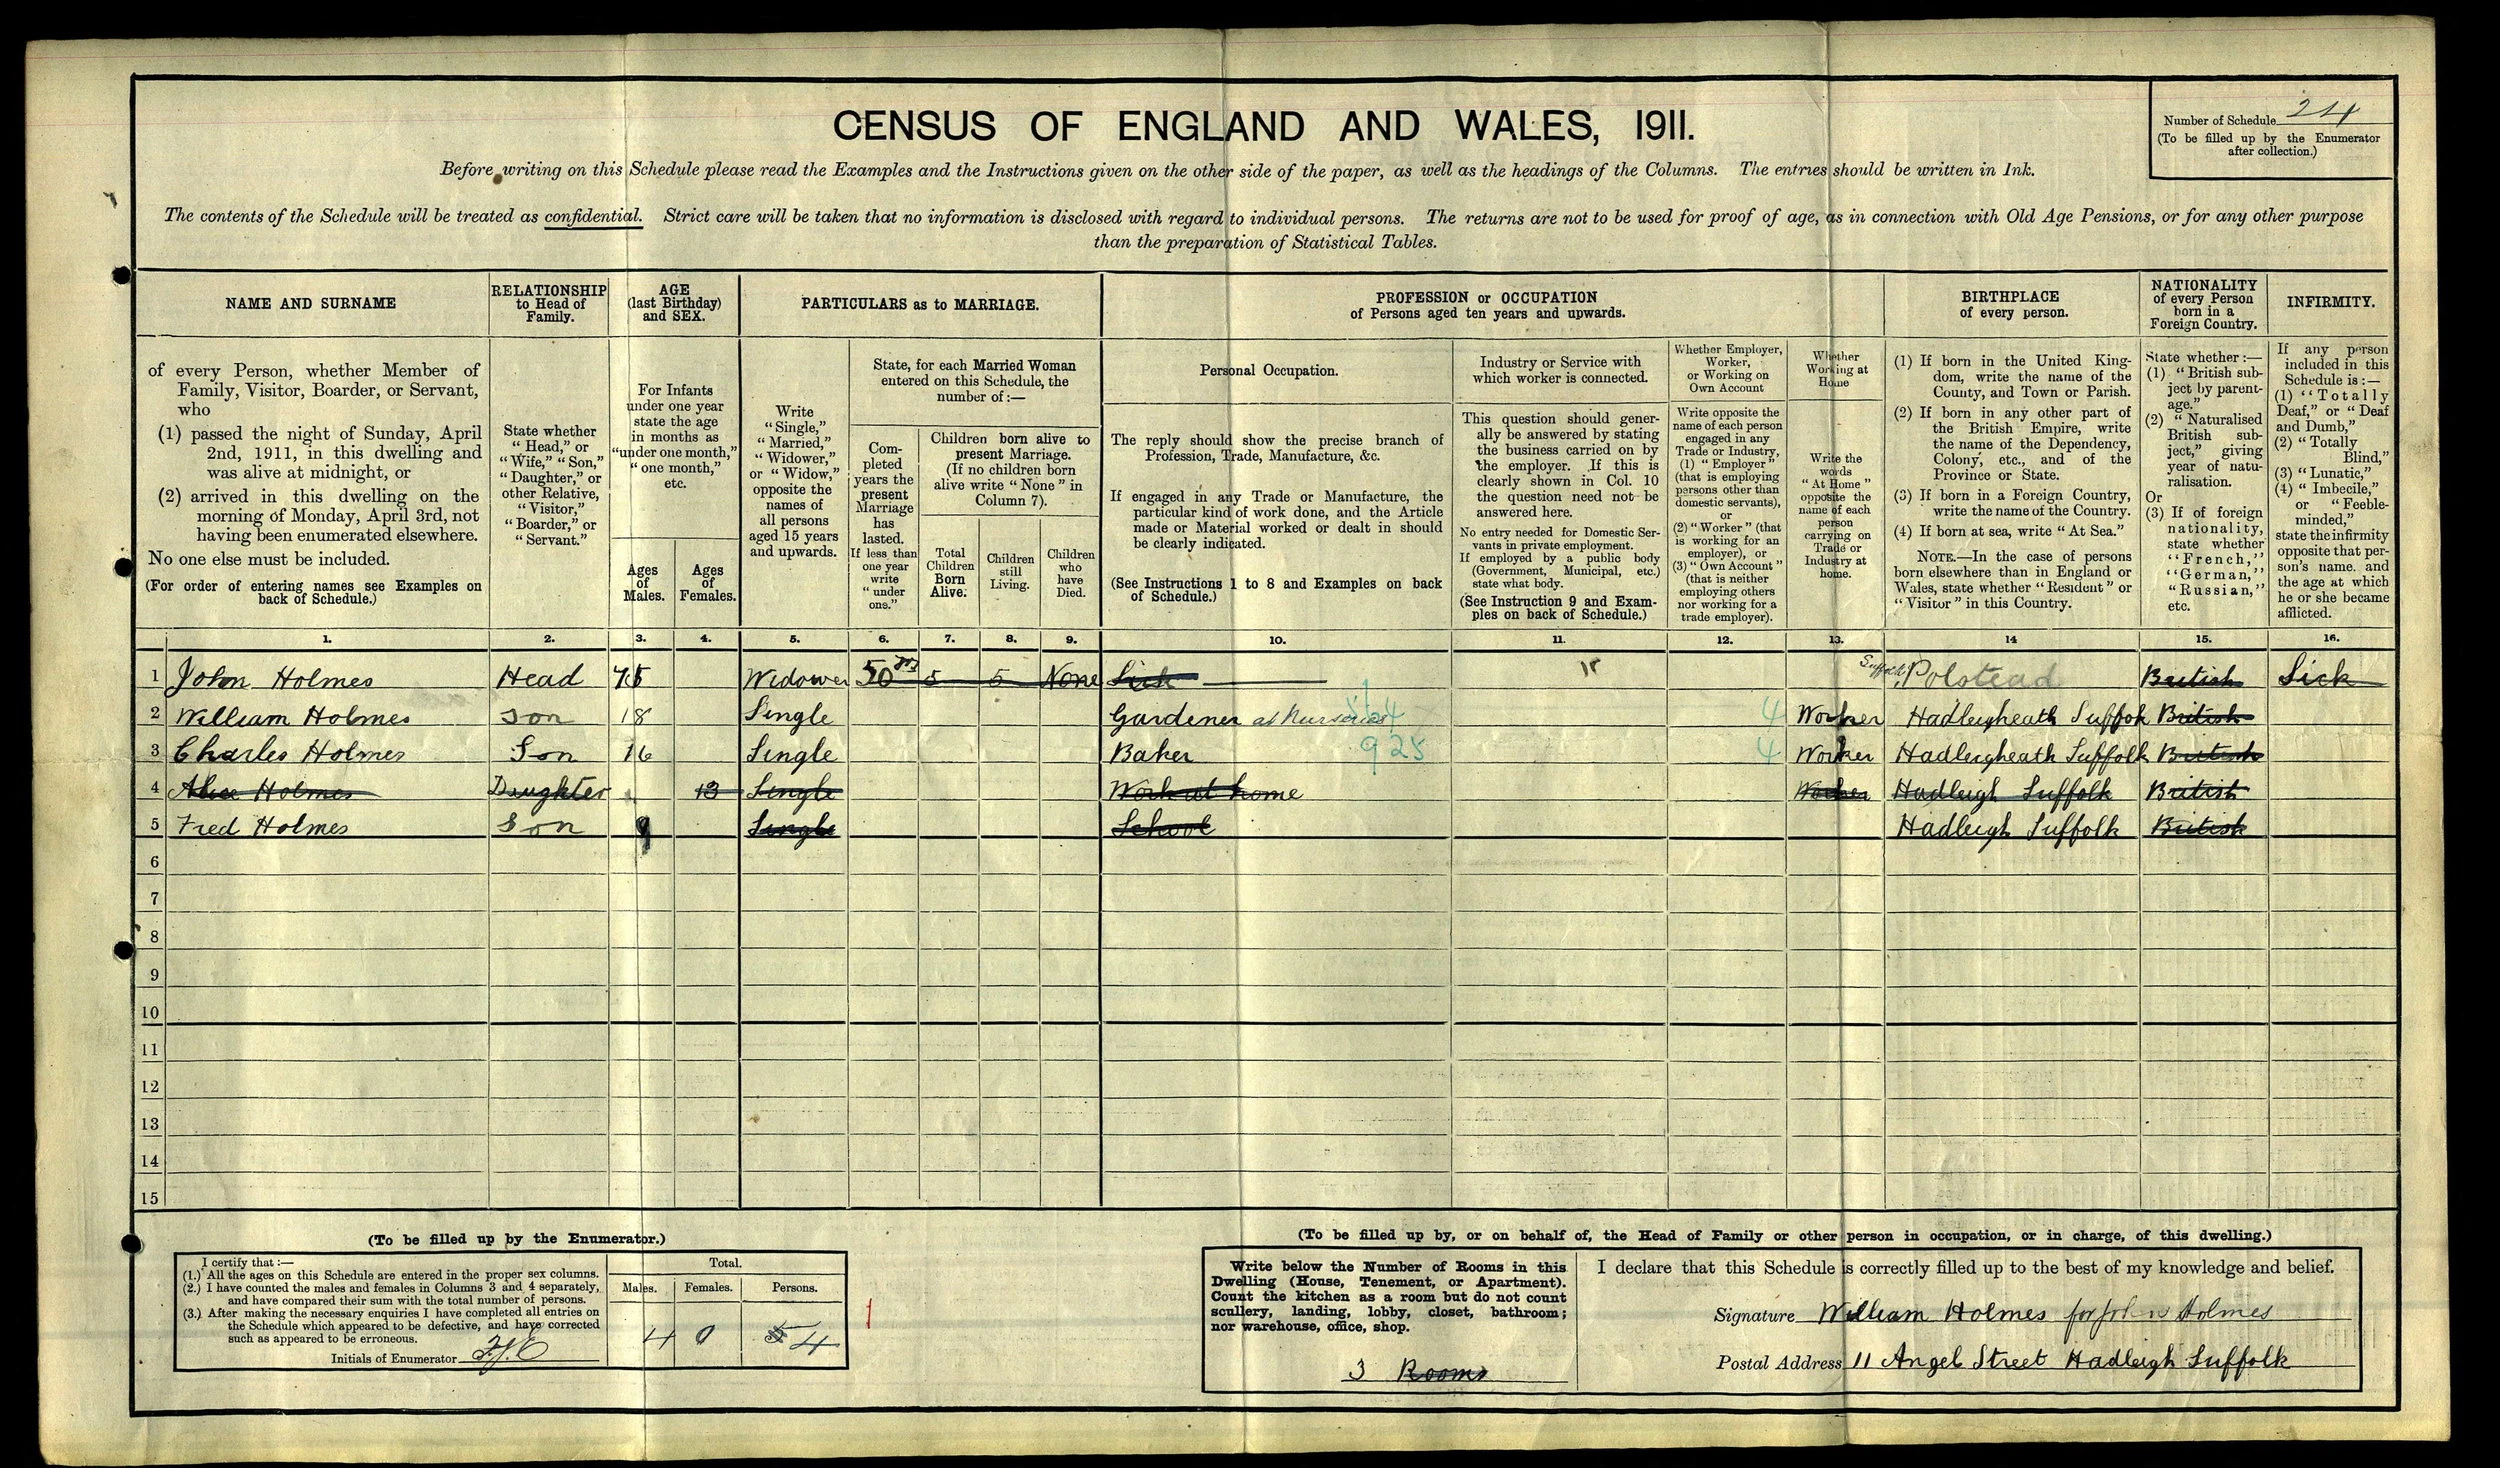 CENSUS OF ENGLAND AND WALES, 1911.
Number of Schedule 24
(To be filled up by the Enumerator
after collection.)
Before writing on this Schedule please read the Examples and the Instructions given on the other side of the paper, as well as the headings of the Columns. The entries should be written in Ink.
The contents of the Schedule will be treated as confidential. Strict care will be taken that no information is disclosed with regard to individual persons. The returns are not to be used for proof of age, as in connection with Old Age Pensions, or for any other purpose
than the preparation of Statistical Tables.
NAME AND SURNAME
of every Person, whether Member of
Family, Visitor, Boarder, or Servant,
who
(1) passed the night of Sunday, April
2nd, 1911, in this dwelling and
was alive at midnight, or
(2) arrived in this dwelling on the
morning of Monday, April 3rd, not
having been enumerated elsewhere.
No one else must be included.
(For order of entering names see Examples on
back of Schedule.)
RELATIONSHIP
to Head of
Family.
State whether
"Head," or
"Wife," "Son,"
"Daughter," or
other Relative,
"Visitor,"
"Boarder," or
"Servant."
AGE
(last Birthday)
and SEX.
For Infants
under one year
state the age
in months as
"under one month,"
"one month,"
etc.
Ages
of
Males.
Ages
of
Females.
PARTICULARS as to MARRIAGE.
Write
"Single,"
"Married,"
"Widower,"
or "Widow,"
opposite the
names of
all persons
aged 15 years
and upwards.
State, for each Married Woman
entered on this Schedule, the
number of:—
Com-
pleted
years the
present
Marriage
has
lasted.
If less than
one year
write
"under
one."
Children born alive to
present Marriage.
(If no children born
alive write "None" in
Column 7).
Total
Children
Born
Alive.
Children
still
Living.
Children
who
have
Died.
PROFESSION or OCCUPATION
of Persons aged ten years and upwards.
Personal Occupation.
The reply should show the precise branch of
Profession, Trade, Manufacture, &c.
If engaged in any Trade or Manufacture, the
particular kind of work done, and the Article
made or Material worked or dealt in should
be clearly indicated.
(See Instructions 1 to 8 and Examples on back
of Schedule.)
Industry or Service with
which worker is connected.
This question should gener-
ally be answered by stating
the business carried on by
the employer. If this is
clearly shown in Col. 10
the question need not be
answered here.
No entry needed for Domestic Ser-
vants in private employment.
If employed by a public body
(Government, Municipal, etc.)
state what body.
(See Instruction 9 and Exam-
ples on back of Schedule.)
Whether Employer,
Worker,
or Working on
Own Account
Write opposite the
name of each person
engaged in any
Trade or Industry,
(1) "Employer"
(that is employing
persons other than
domestic servants),
or
(2) "Worker" (that
is working for an
employer), or
(3) "Own Account"
(that is neither
employing others
nor working for a
trade employer).
Whether
Working at
Home
Write the
words
"At Home"
opposite the
name of each
person
carrying on
Trade or
Industry at
home.
BIRTHPLACE
of every person.
(1) If born in the United King-
dom, write the name of the
County, and Town or Parish.
(2) If born in any other part of
the British Empire, write
the name of the Dependency,
Colony, etc., and of the
Province or State.
(3) If born in a Foreign Country,
write the name of the Country.
(4) If born at sea, write "At Sea."
NOTE.—In the case of persons
born elsewhere than in England or
Wales, state whether "Resident" or
"Visitor" in this Country.
NATIONALITY
of every Person
born in a
Foreign Country.
State whether:—
(1) "British sub-
ject by parent-
age."
(2) "Naturalised
British sub-
ject," giving
year of natu-
ralisation.
Or
(3) If of foreign
nationality,
state whether
"French,"
"German,"
"Russian,"
etc.
INFIRMITY.
If any person
included in this
Schedule is:—
(1) "Totally
Deaf," or "Deaf
and Dumb,"
(2) "Totally
Blind,"
(3) "Lunatic,"
(4) "Imbecile,"
or "Feeble-
minded,"
state the infirmity
opposite that per-
son's name, and
the age at which
he or she became
afflicted.
1. 2. 3. 4. 5. 6. 7. 8. 9. 10. 11. 12. 13. 14 15. 16.
1 John Holmes Head 75 Widower 50 yrs 5 5 None Sick Suffolk, Polstead British Sick
2 William Holmes Son 18 Single Gardener at Nurseries 4 Worker Hadleigheath Suffolk British
3 Charles Holmes Son 16 Single Baker 925 4 Worker Hadleigheath Suffolk British
4 Alice Holmes Daughter 13 Single Work at home Worker Hadleigh Suffolk British
5 Fred Holmes Son 9 Single School Hadleigh Suffolk British
6
7
8
9
10
11
12
13
14
15
(To be filled up by the Enumerator.)
I certify that:—
(1.) All the ages on this Schedule are entered in the proper sex columns.
(2.) I have counted the males and females in Columns 3 and 4 separately,
and have compared their sum with the total number of persons.
(3.) After making the necessary enquiries I have completed all entries on
the Schedule which appeared to be defective, and have corrected
such as appeared to be erroneous.
Initials of Enumerator
Total.
Males. Females. Persons.
4 0 5 4
(To be filled up by, or on behalf of, the Head of Family or other person in occupation, or in charge, of this dwelling.)
Write below the Number of Rooms in this
Dwelling (House, Tenement, or Apartment).
Count the kitchen as a room but do not count
scullery, landing, lobby, closet, bathroom;
nor warehouse, office, shop.
3 Rooms
I declare that this Schedule is correctly filled up to the best of my knowledge and belief.
Signature William Holmes for John Holmes
Postal Address 11 Angel Street Hadleigh Suffolk